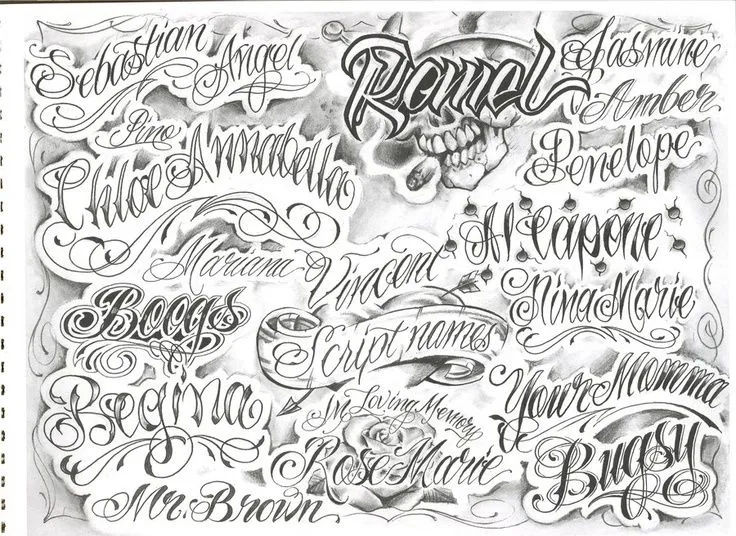 Sebastian
Angel
Ramel
Jasmine
Amber
Penelope
Chloe Annabella
Al Capone
Mariana
Vincent
Nina Marie
Script names
Regina
In Loving Memory
Rose Marie
Your Momma
Bugsy
Mr. Brown